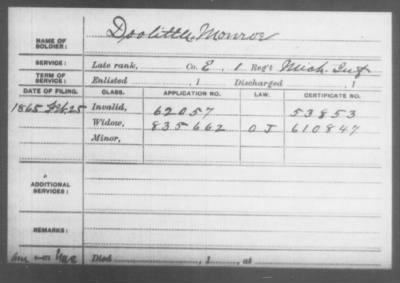 NAME OF SOLDIER: Doolittle, Monroe
SERVICE: Late rank, Co. E, 1 Reg't Mich. Inf
TERM OF SERVICE: Enlisted , 1 Discharged , 1
DATE OF FILING. CLASS. APPLICATION NO. LAW. CERTIFICATE NO.
1865 Feb. 25 Invalid, 62057 53853
Widow, 835662 O J 610847
Minor,
ADDITIONAL SERVICES:
REMARKS:
Died , 1 , at